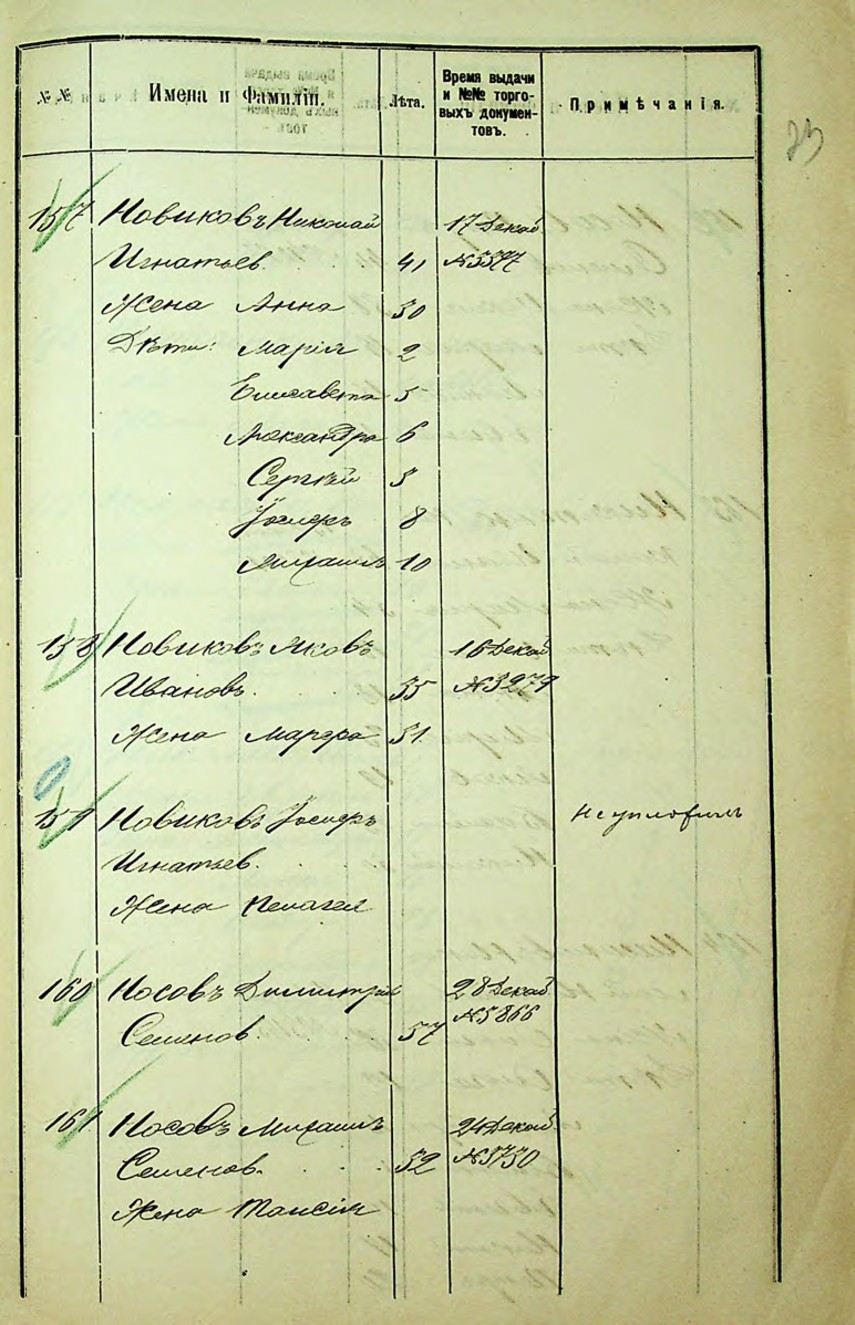 23
№№ Имена и Фамиліи. Лѣта. Время выдачи и №№ торговыхъ документовъ. Примѣчанія.
157 Новиковъ Николай 17 Декаб
Игнатьев. 41 №3377
Жена Анна 30
Дѣти: Марія 2
Елисавета 5
Александра 6
Сергѣй 3
Іосифъ 8
Михаилъ 10
158 Новиковъ Яковъ 16 Декаб
Ивановъ. 35 №3279
Жена Марфа 31
159 Новиковъ Іосифъ
Игнатьев.
Жена Пелагея
160 Носовъ Димитрій 28 Декаб
Семенов. 57 №5866
161 Носовъ Михаилъ 24 Декаб
Семенов. 52 №3730
Жена Таисія